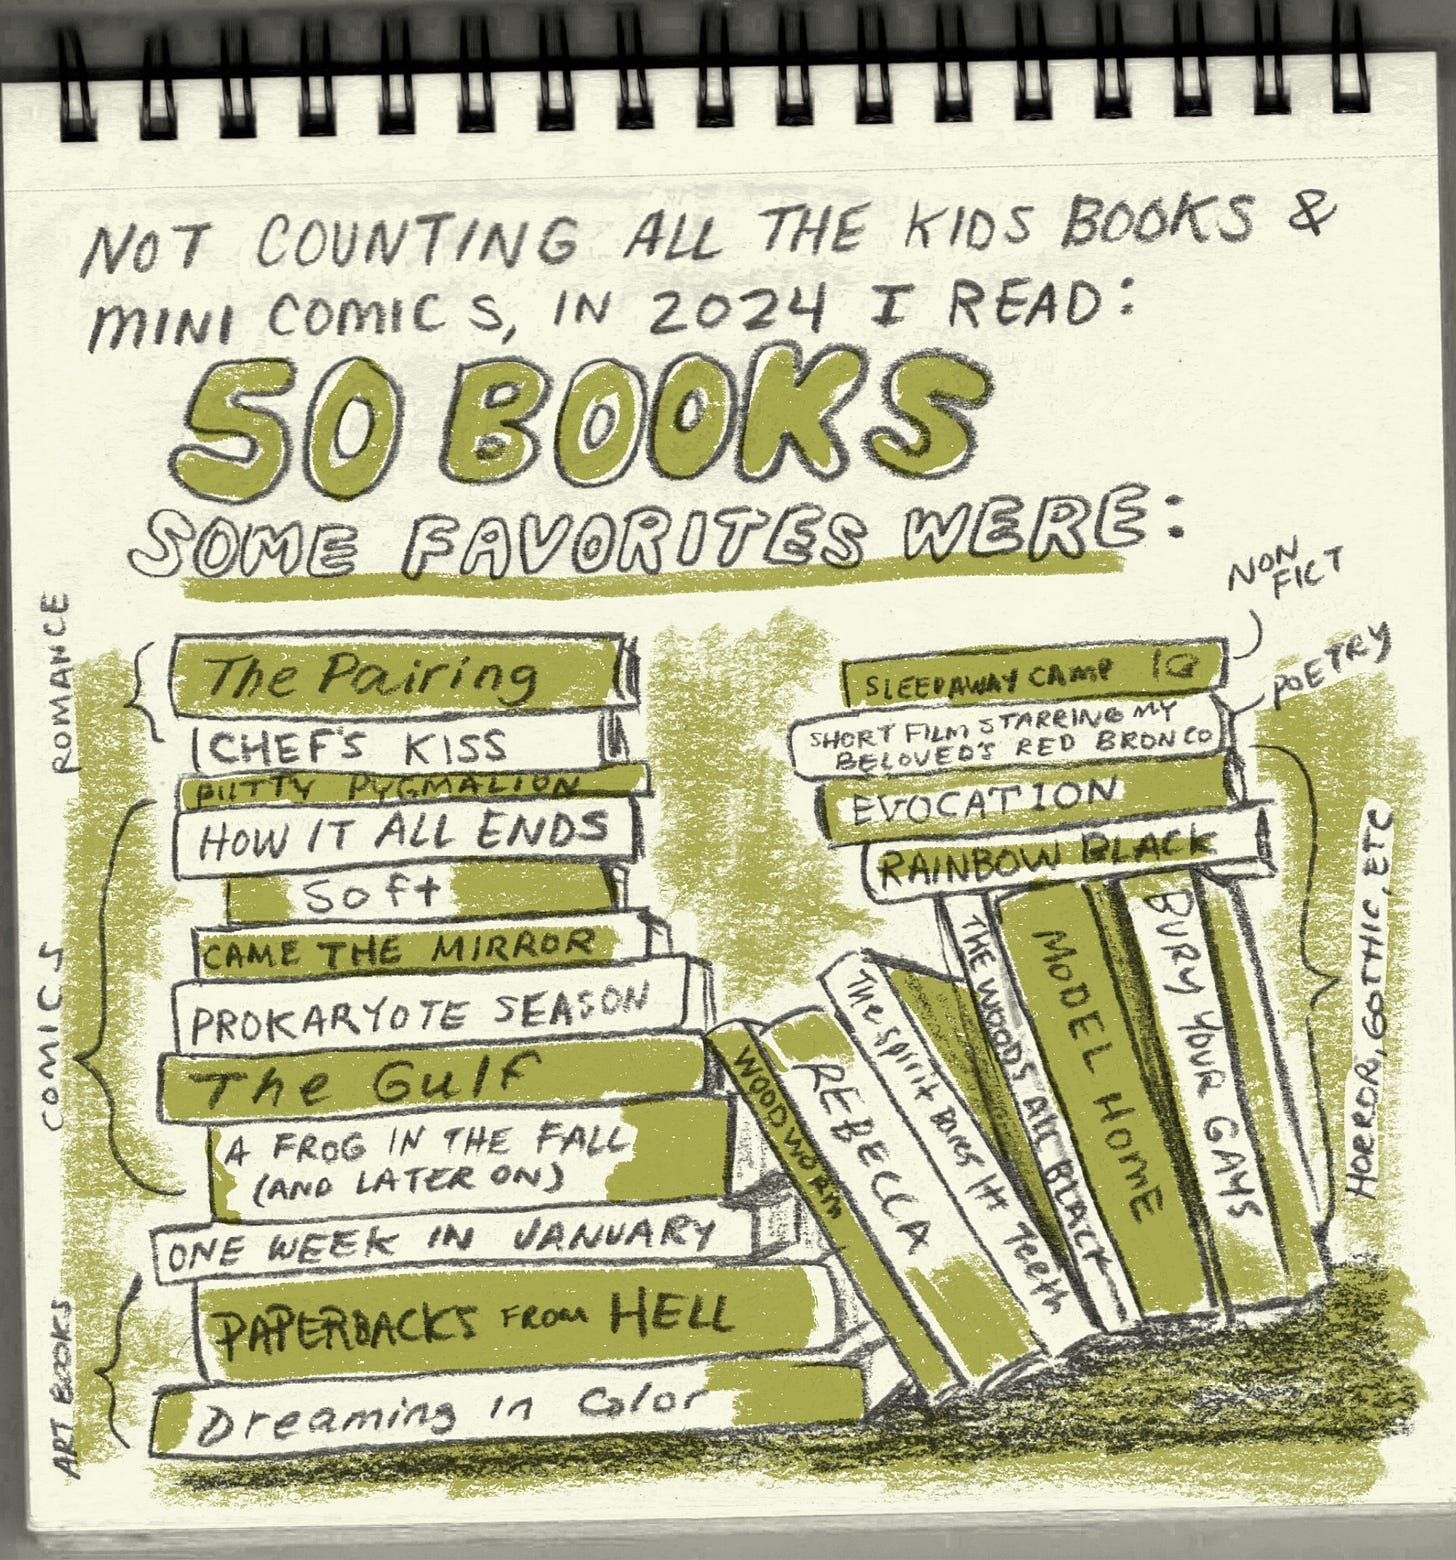 NOT COUNTING ALL THE KIDS BOOKS &
MINI COMICS, IN 2024 I READ:
50 BOOKS
SOME FAVORITES WERE:
ROMANCE
The Pairing
CHEF'S KISS
COMICS
PUTTY PYGMALION
HOW IT ALL ENDS
Soft
CAME THE MIRROR
PROKARYOTE SEASON
The Gulf
A FROG IN THE FALL
(AND LATER ON)
ONE WEEK IN JANUARY
ART BOOKS
PAPERBACKS FROM HELL
Dreaming in Color
NON
FICT
SLEEPAWAY CAMP
POETRY
SHORT FILM STARRING MY
BELOVED'S RED BRONCO
HORROR, GOTHIC, ETC
EVOCATION
RAINBOW BLACK
WOODWORM
REBECCA
The Spirit Bares Its Teeth
THE WOODS ALL BLACK
MODEL HOME
BURY YOUR GAYS